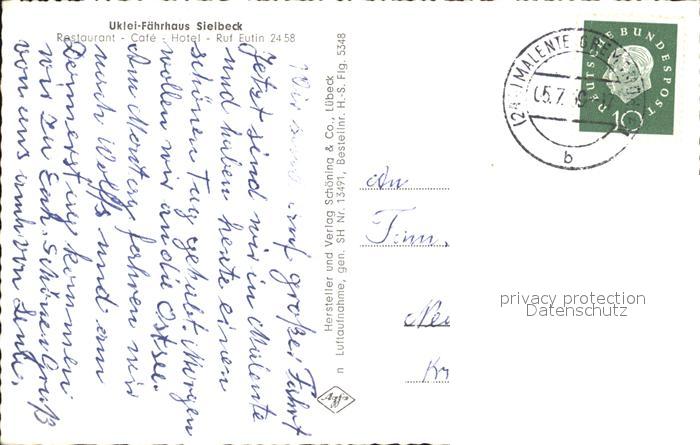 Uklei-Fährhaus Sielbeck
Restaurant - Café - Hotel - Ruf Eutin 24 58
Wir sind auf großer Fahrt
Jetzt sind wir in Malente
und haben heute einen
schönen Tag gehabt. Morgen
wollen wir an die Ostsee.
Am Montag fahren wir
nach Wolffs und am
Donnerstag kommen
wir zu Euch. Schönen Gruß
von uns auch von
Hersteller und Verlag Schöning & Co., Lübeck
n Luftaufnahme, gen. SH Nr. 13491, Bestellnr. H.-S. Flg. 5348
Agfa
MALENTE
b
DEUTSCHE BUNDESPOST
10
An
Fam.
Kr
privacy protection
Datenschutz